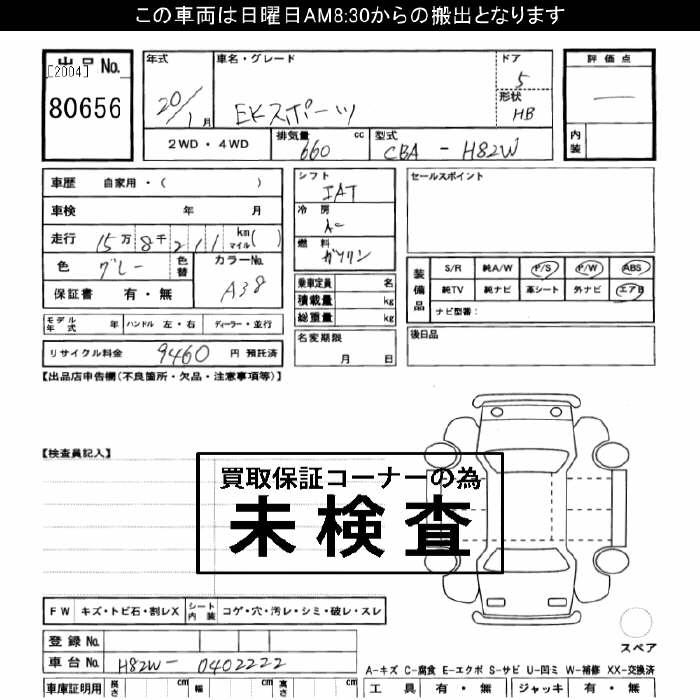 この車両は日曜日AM8:30からの搬出となります
出品No.
[2004]
80656
年式
20/1月
車名・グレード
EKスポーツ
ドア
5
形状
HB
評価点
―
内装
2WD・4WD
排気量
660 cc
型式
CBA - H82W
車歴 自家用・( )
車検 年 月
走行 15万8千211 km マイル( )
色 グレー 色替
カラーNo. A38
保証書 有・無
モデル年式 年 ハンドル 左・右 ディーラー・並行
リサイクル料金 9460 円 預託済
シフト
IAT
冷房
燃料
ガソリン
乗車定員 名
積載量 kg
総重量 kg
名変期限
月 日
セールスポイント
装備品
S/R 純A/W P/S P/W ABS
純TV 純ナビ 革シート 外ナビ エアB
ナビ型番:
後日品
【出品店申告欄(不良箇所・欠品・注意事項等)】
【検査員記入】
買取保証コーナーの為
未検査
FW キズ・トビ石・割レX シート内装 コゲ・穴・汚レ・シミ・破レ・スレ
スペア
登録No.
車台No. H82W- 0402222
A-キズ C-腐食 E-エクボ S-サビ U-凹ミ W-補修 XX-交換済
車庫証明用 長さ cm 幅 cm 高さ cm
工具 有・無 ジャッキ 有・無